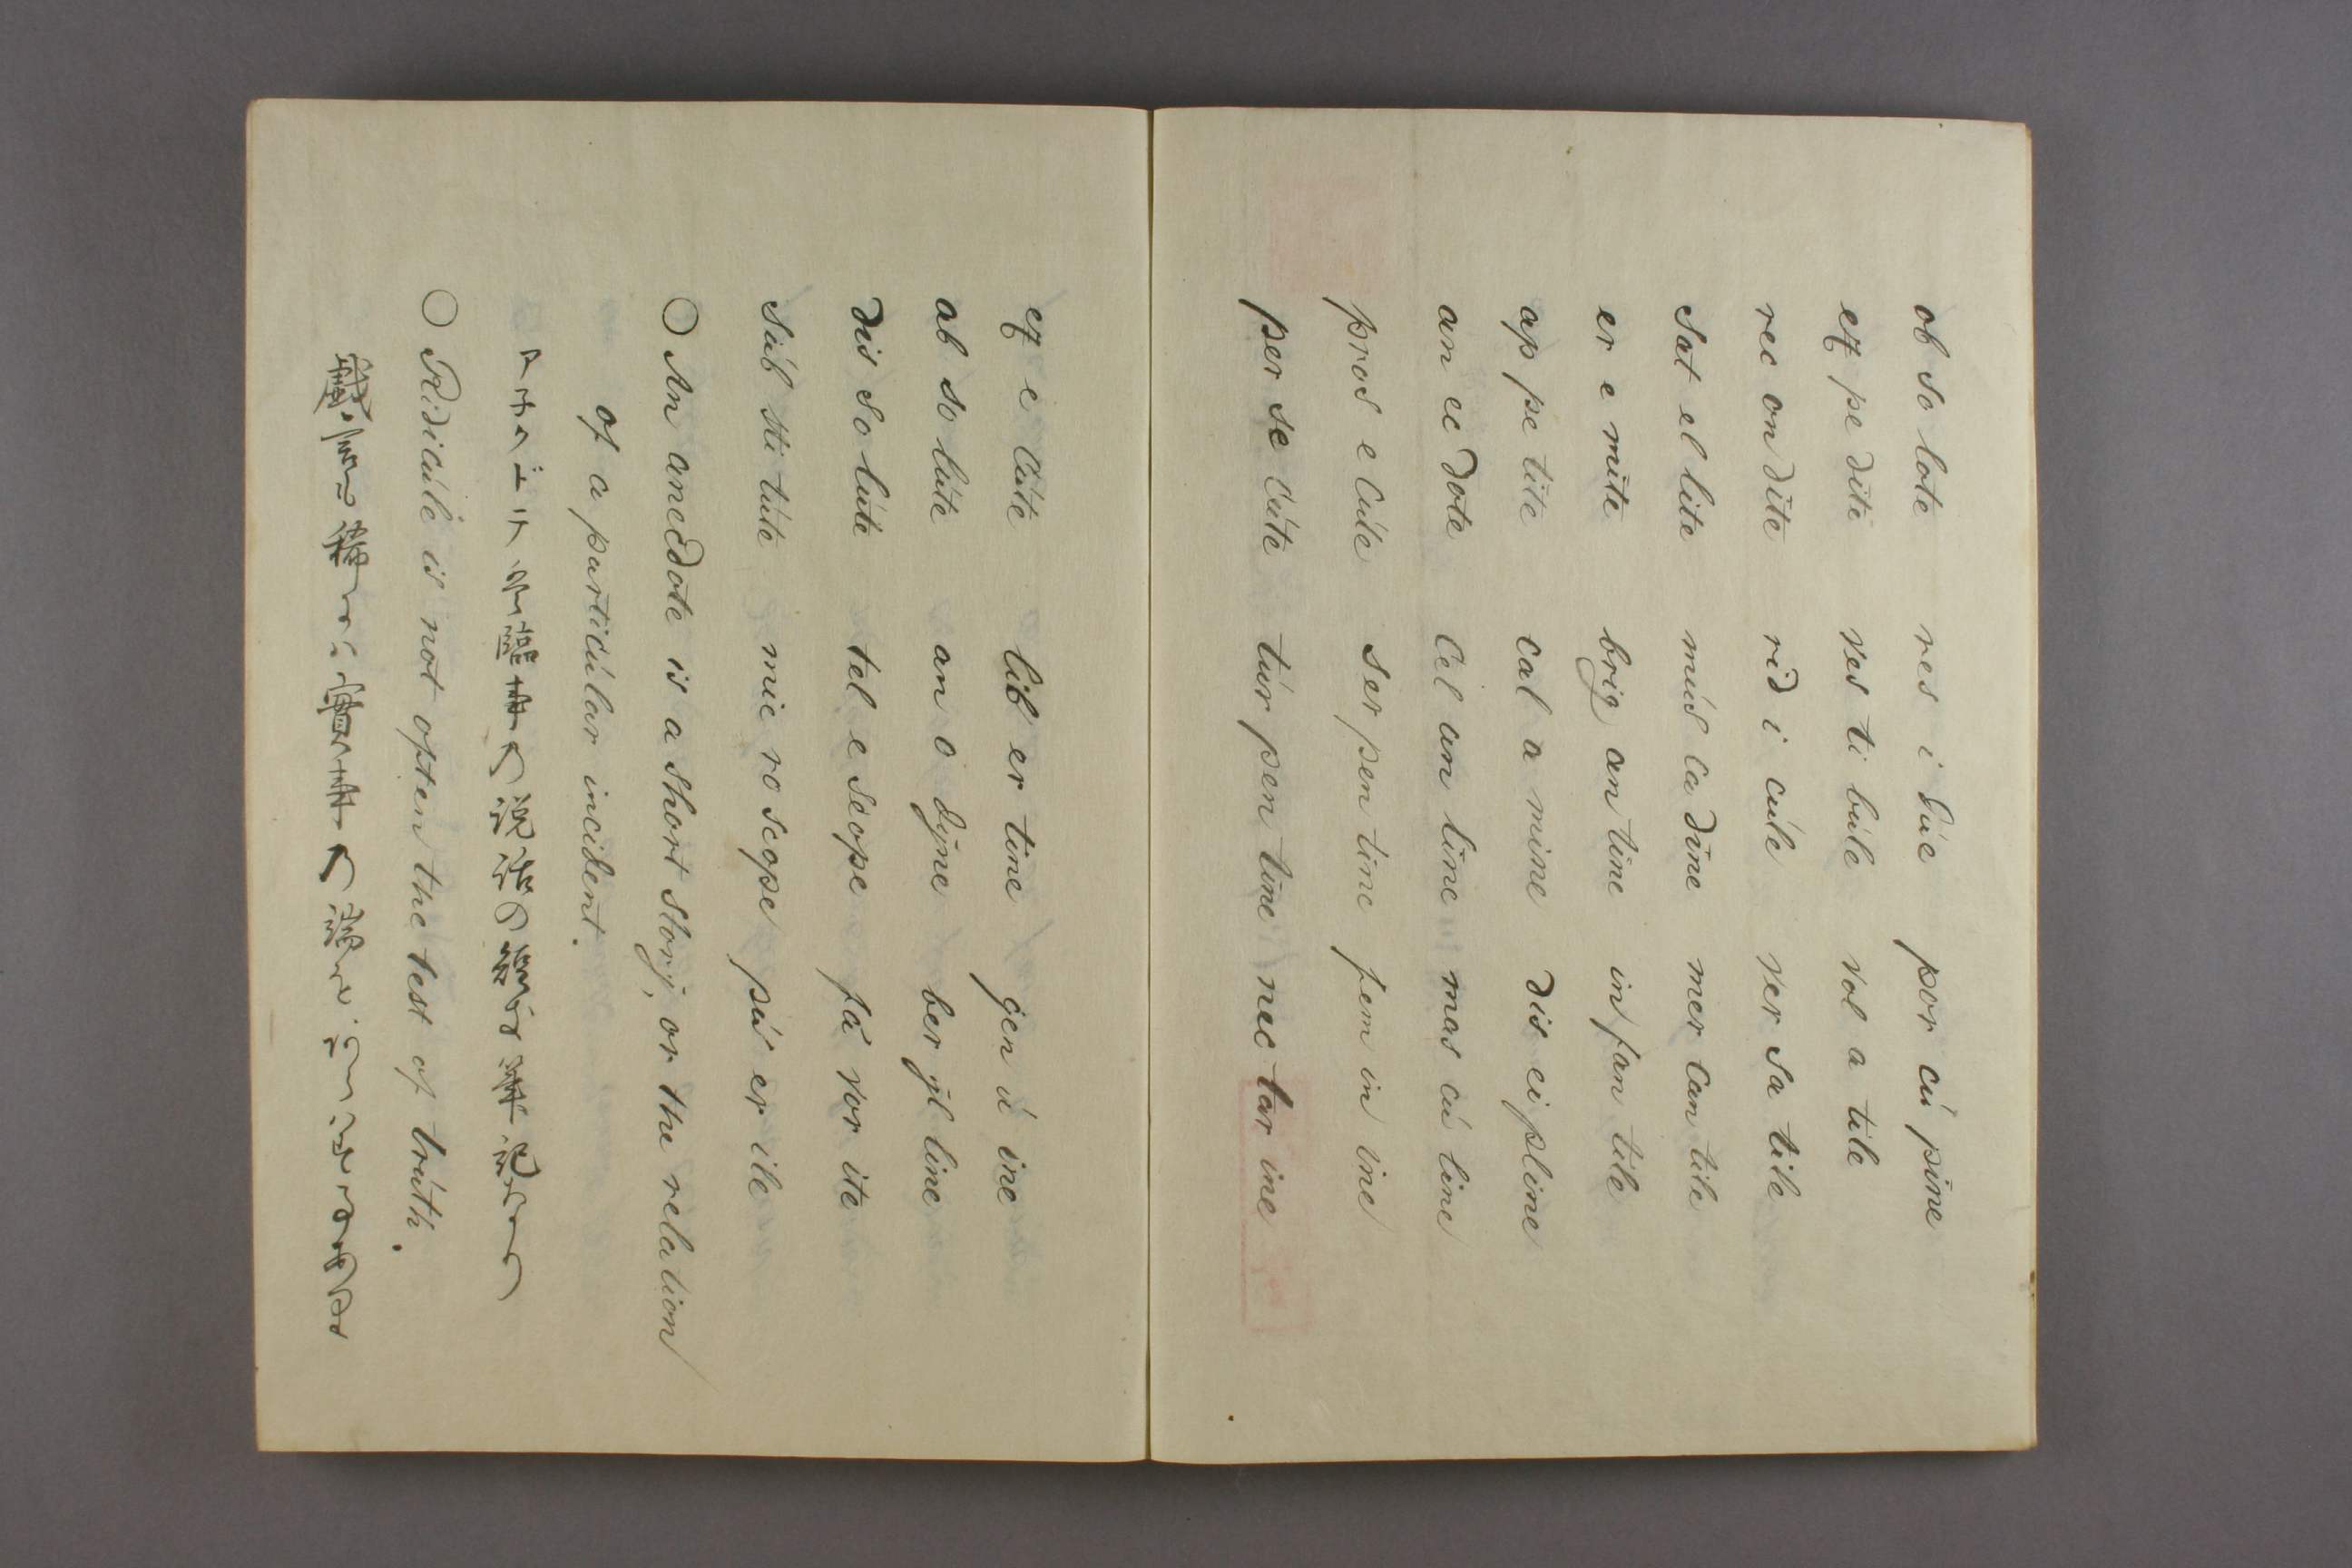 ob so lote res i dúe por cú pine
ex pe dite ves ti búle vol a tile
rec on dite rid i cúle ver sa tile
sat el lite mús ca dine mer can tile
er e mite brig an tine in fan tile
ap pe tite cal a mine dis ci pline
an ec dote cel an line mas cú line
pros e cúte ser pen tine fem in ine
per se cúte túr pen tine nec tar ine
ex e cúte lib er tine gen ú ine
ab so lúte an o dyne ber yl line
dis so lúte tel e scope fa vor ite
súb sti túte mic ro scope pú er ile
○ An anecdote is a short story, or the relation
of a particúlar incident.
○ Ridicúle is not often the test of trúth.